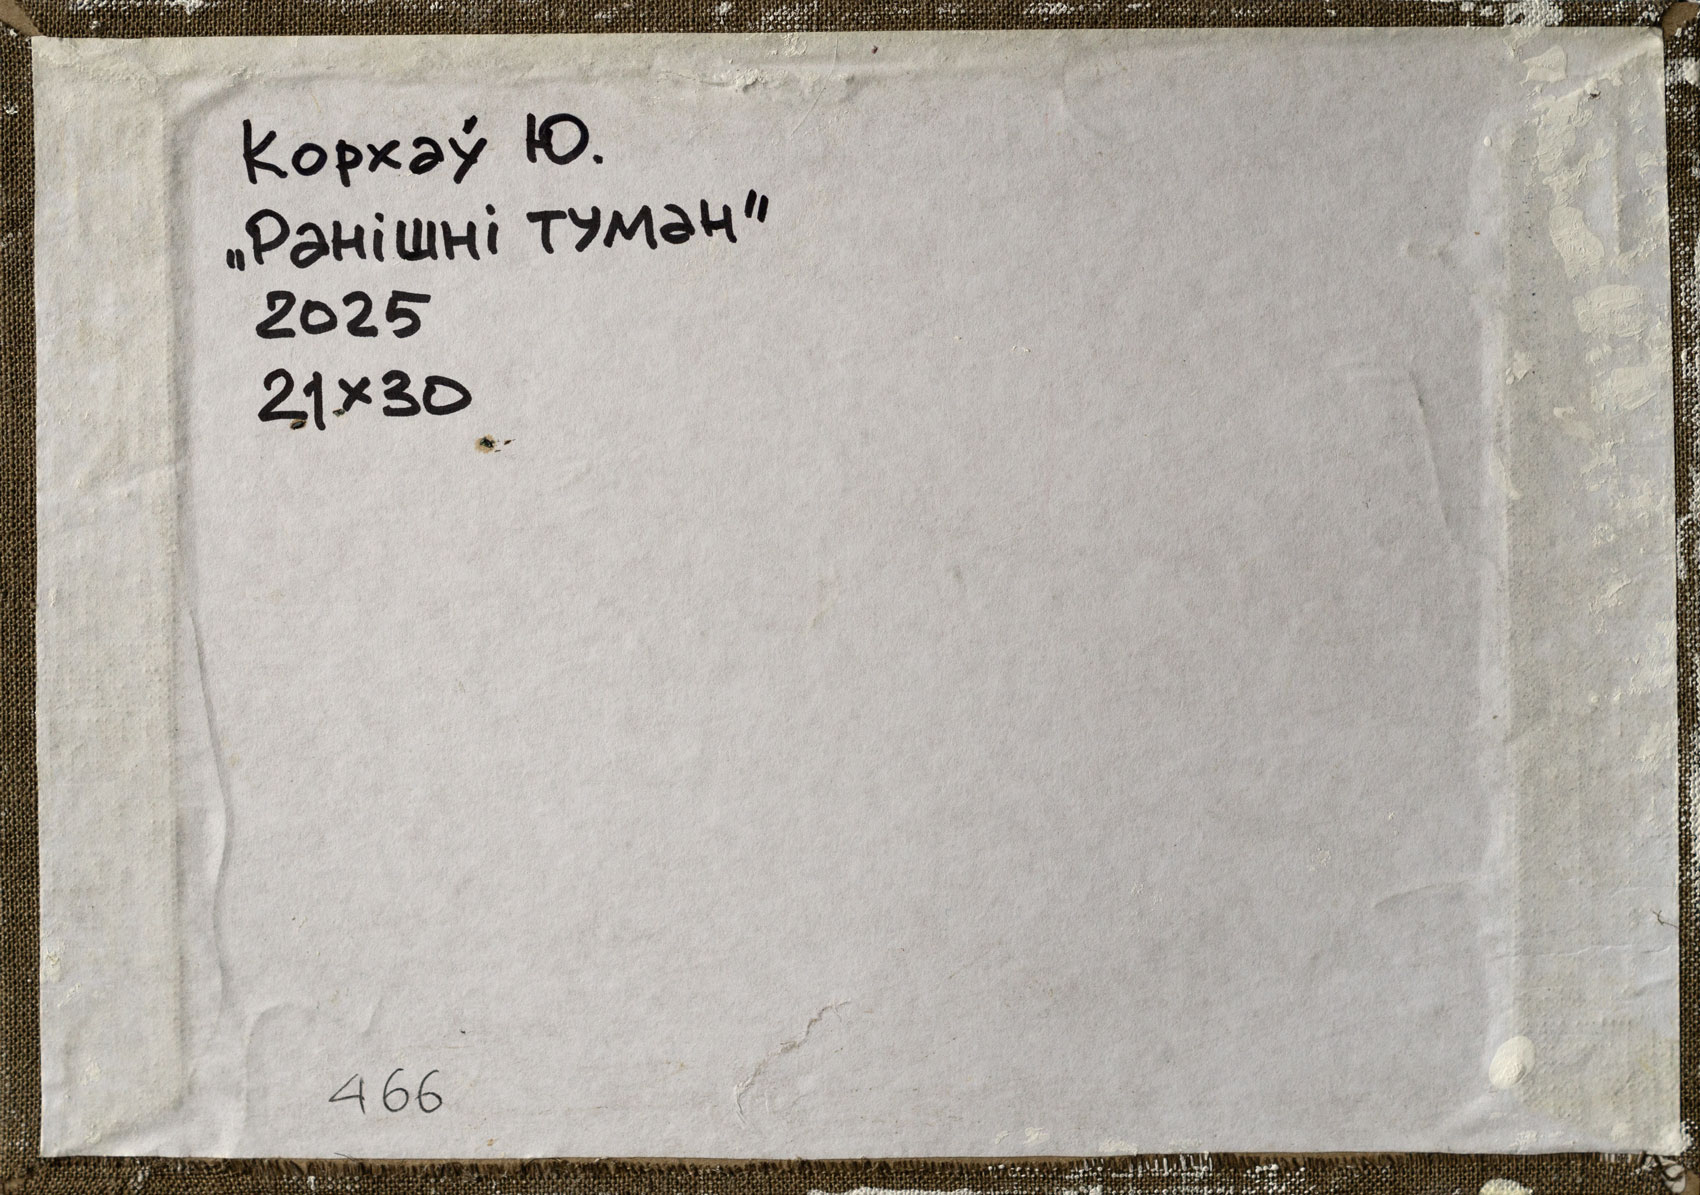 Корхаў Ю.
„Ранішні туман"
2025
21x30
466